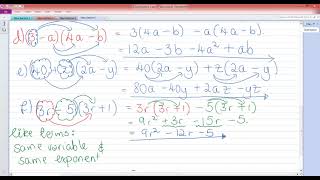 d) (3-a)(4a-b) = 3(4a-b) -a(4a-b)
= 12a - 3b - 4a² + ab
e) (40+z)(2a-y) = 40(2a-y) + z(2a-y)
= 80a - 40y + 2az - yz
f) (3r-5)(3r+1) = 3r(3r+1) -5(3r+1)
= 9r² + 3r - 15r - 5.
= 9r² - 12r - 5
like terms:
same variable &
same exponent